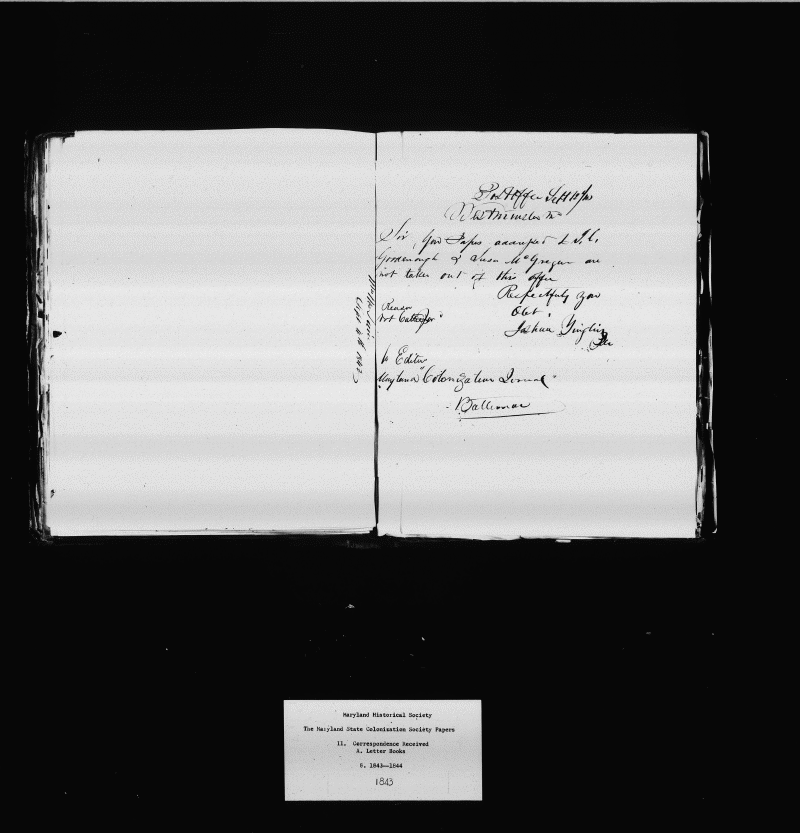 Post Office Sept 10/43
Westminster Md
Sir, Your Papers addressed to J. C.
Goodenough & Susan McGregor are
not taken out of this office
Respectfully your
Obt.
Joshua Yingling
PM
Reason
Not Called for"
to Editor
Maryland "Colonization Journal"
Baltimore
Sept 1843
Maryland Historical Society
The Maryland State Colonization Society Papers
II. Correspondence Received
A. Letter Books
6. 1843—1844
1843